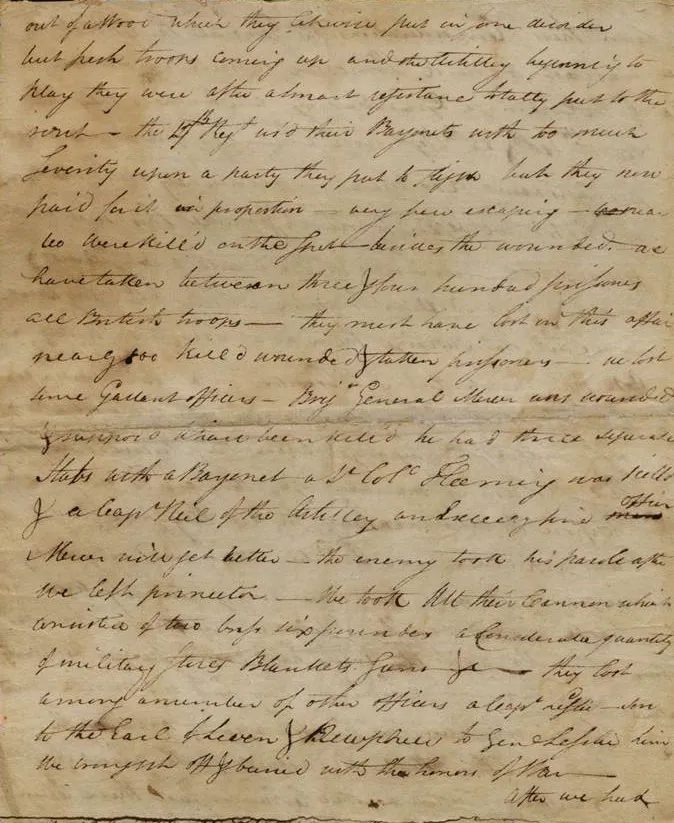 out of a Wood which they likewise put in one disorder
but fresh troops coming up and the Artillery beginning to
play they were after a smart resistance totally put to the
rout — the 17th Regt us'd their Bayonets with too much
Severity upon a party they put to flight but they now
paid for it in proportion — very few escaping — near
60 were kill'd on the spot — besides the wounded. we
have taken between three & four hundred prisoners
all British troops — they must have lost in this affair
nearly 500 kill'd wounded & taken prisoners — we lost
some Gallant officers — Brigr General Mercer was wounded
& suppos'd to have been kill'd he had three separate
stabs with a Bayonet a Lt Colo Fleeming was kill'd
& a Capt Neil of the Artillery an Excellent fine officer
Mercer will get better — the enemy took his parole after
We left princeton — We took All their Cannon which
consisted of two brass six pounders a Considerable quantity
of military stores Blankets Guns &c — they lost
among a number of other officers a Capt Leslie — son
to the Earl of Leven & Nephew to Genl Leslie him
We brought off & buried with the honors of War —
After we had